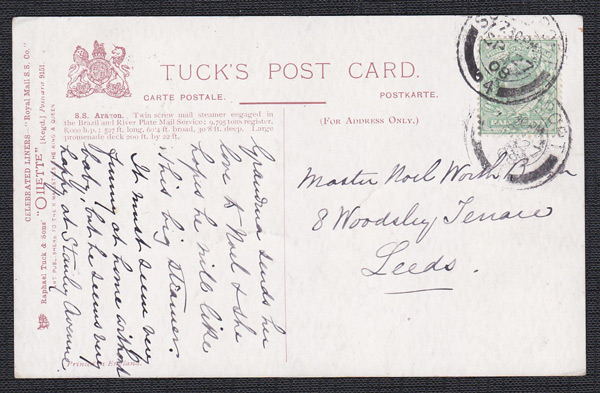 TUCK'S POST CARD.
CARTE POSTALE. POSTKARTE.
(FOR ADDRESS ONLY.)
S.S. Aragon. Twin screw mail steamer engaged in
the Brazil and River Plate Mail Service: 9,795 tons register,
8,000 h.p.; 527 ft. long, 60'4 ft. broad, 30'8 ft. deep. Large
promenade deck 200 ft. by 22 ft.
CELEBRATED LINERS "Royal Mail S.S. Co."
Raphael Tuck & Sons' "OILETTE" [Regd.] Postcard 9151.
ART PUBLISHERS TO THE KING & QUEEN
Grandma sends her
love to Noel & she
hopes he will like
this big steamer.
It must seem very
funny at home without
baby, but he seems very
happy at Stanley Avenue
Master Noel
8 Woodsley Terrace
Leeds.
Printed in England.